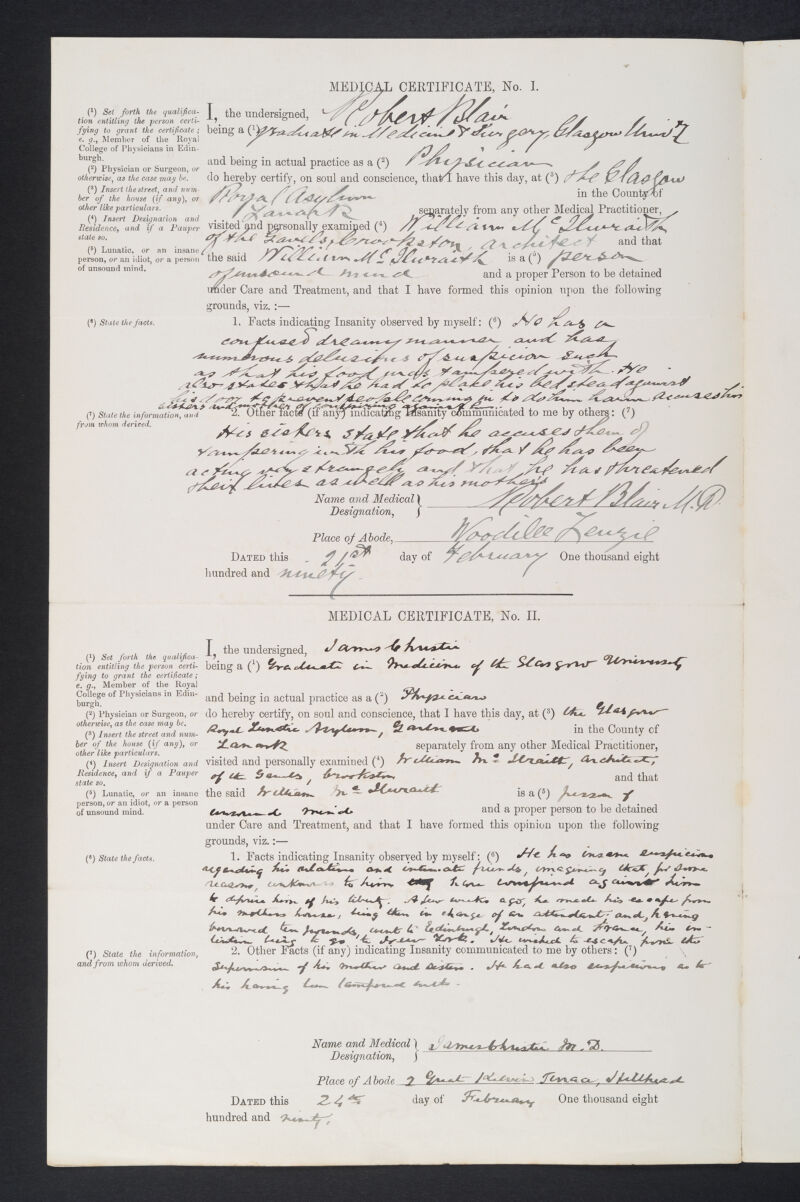 MEDICAL CERTIFICATE, No. I.
(1) Set forth the qualifica-
tion entitling the person certi-
fying to grant the certificate;
e. g., Member of the Royal
College of Physicians in Edin-
burgh.
(2) Physician or Surgeon, or
otherwise, as the case may be.
(3) Insert the street, and num-
ber of the house (if any), or
other like particulars.
(4) Insert Designation and
Residence, and if a Pauper
state so.
(5) Lunatic, or an insane
person, or an idiot, or a person
of unsound mind.
I, the undersigned, Robert Blair
being a (1) graduate in Medicine & Surgery Glasgow Univ
and being in actual practice as a (2) Physician
do hereby certify, on soul and conscience, that I have this day, at (3) the Glasgow
Royal Asylum in the County of
Lanark separately from any other Medical Practitioner,
visited and personally examined (4) William McIlwraith
of the Gables, Crookston, architect and that
the said William McIlwraith is a (5) person
of unsound mind and a proper Person to be detained
under Care and Treatment, and that I have formed this opinion upon the following
grounds, viz. :—
(6) State the facts.
1. Facts indicating Insanity observed by myself: (6) He has a
confused dreamy manner and has
numerous delusions of suspicion such
as that his food was tampered with. He
also states that he had to place his bedstead against
his door to prevent people coming in to do him harm accuses his
sisters and mother of conspiring against him.
(7) State the information, and
from whom derived.
2. Other facts (if any) indicating Insanity communicated to me by others: (7)
His sisters state that he accuses them of
tampering with his food, that he has been
acting very strangely and that he has threatened
their lives as well as his mothers
Name and Medical Designation, Robert Blair M.D.
Place of Abode, Woodilee Lenzie
DATED this 21st day of February One thousand eight
hundred and ninety.
MEDICAL CERTIFICATE, No. II.
(1) Set forth the qualifica-
tion entitling the person certi-
fying to grant the certificate;
e. g., Member of the Royal
College of Physicians in Edin-
burgh.
(2) Physician or Surgeon, or
otherwise, as the case may be.
(3) Insert the street and num-
ber of the house (if any), or
other like particulars.
(4) Insert Designation and
Residence, and if a Pauper
state so.
(5) Lunatic, or an insane
person, or an idiot, or a person
of unsound mind.
I, the undersigned, James Christie
being a (1) Graduate in Medicine of the Glasgow University
and being in actual practice as a (2) Physician
do hereby certify, on soul and conscience, that I have this day, at (3) the Glasgow
Royal Lunatic Asylum, Gartnavel in the County of
Lanark separately from any other Medical Practitioner,
visited and personally examined (4) William McIlwraith, Architect,
of the Gables, Crookston and that
the said William McIlwraith is a (5) person of
unsound mind and a proper person to be detained
under Care and Treatment, and that I have formed this opinion upon the following
grounds, viz. :—
(6) State the facts.
1. Facts indicating Insanity observed by myself: (6) He has insane suspicions
regarding his relations and intimate friends, imagining that, for some
reasons, unknown to him have conspired against him
to deprive him of his liberty. A few weeks ago, he made his escape from
his mothers house, being then in charge of an attendant; and, having
borrowed ten pounds, went to Edinburgh, London and France, his in-
tention being to go to New York. He wished to escape from the
(7) State the information,
and from whom derived.
2. Other Facts (if any) indicating Insanity communicated to me by others: (7)
supervision of his mother and sisters. He had also suspicions as to
his having been tampered with.
Name and Medical Designation, James Christie M.D.
Place of Abode 2 Great Kelvin Terrace, Hillhead
DATED this 24th day of February One thousand eight
hundred and ninety.